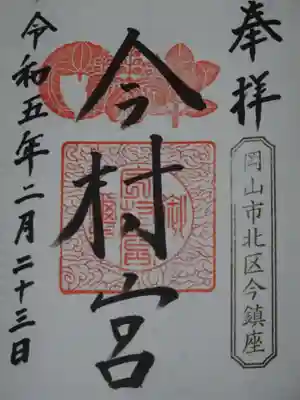 奉拝
岡山市北区今鎮座
今村宮
令和五年二月二十三日